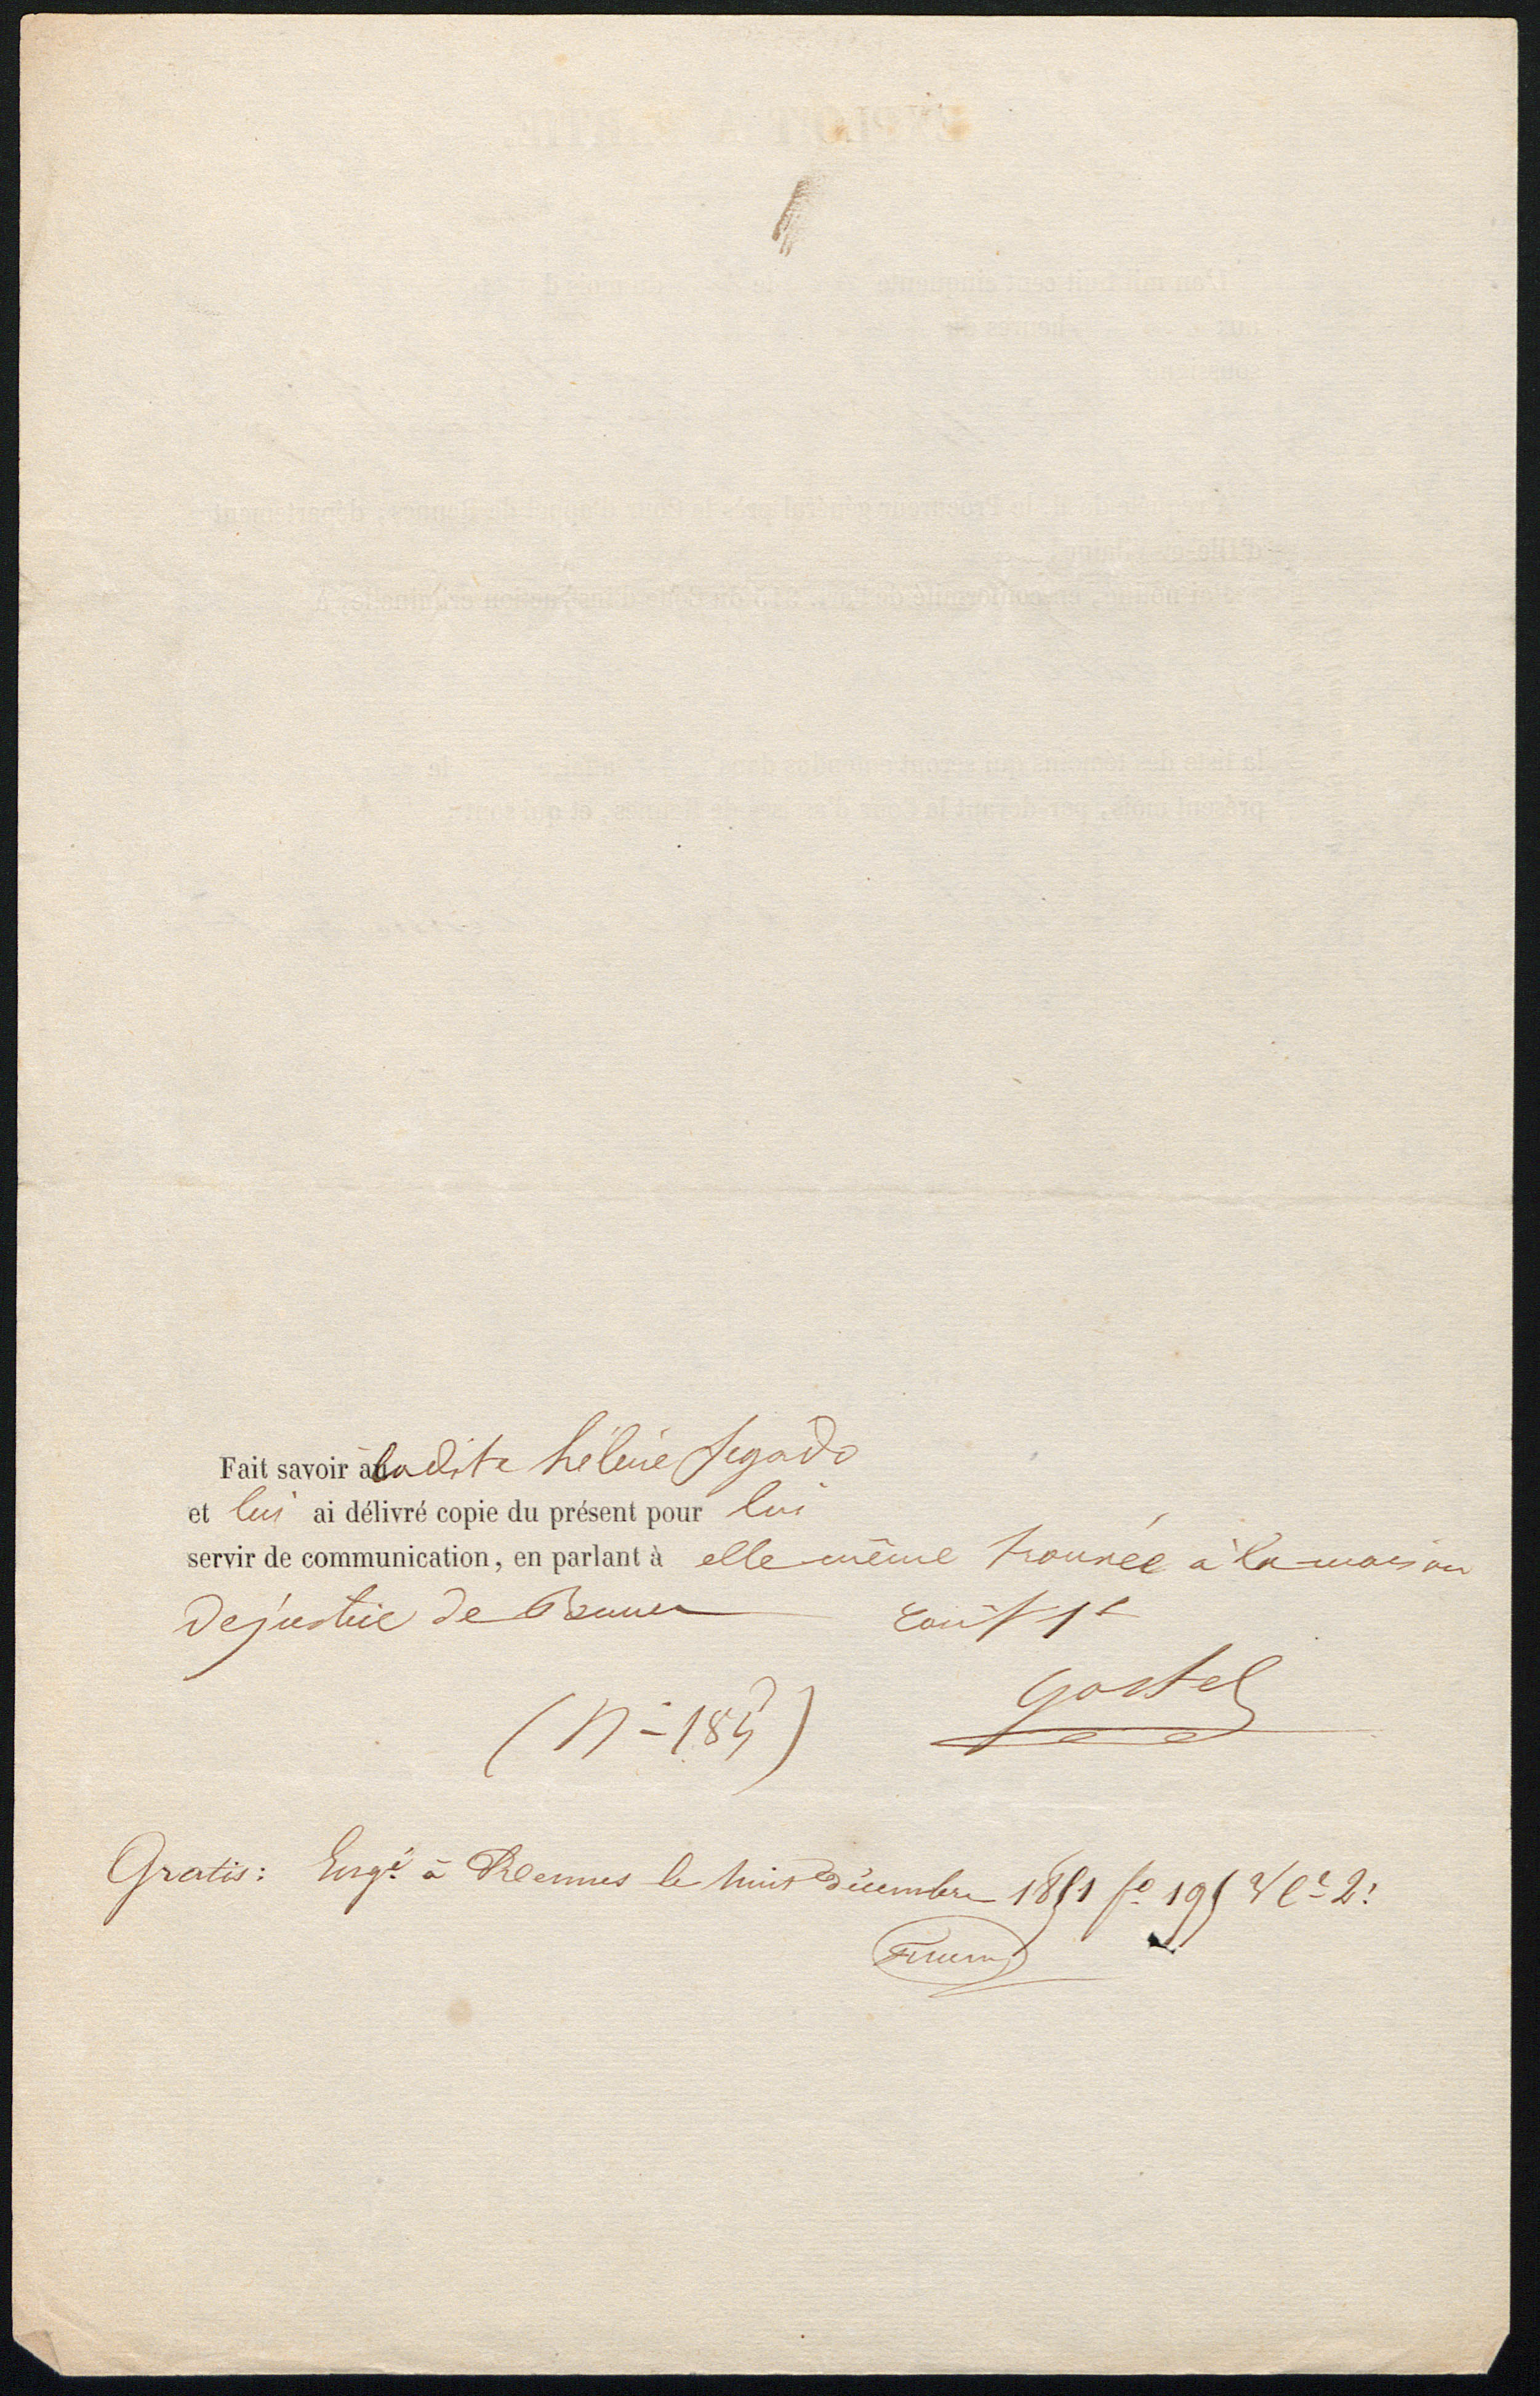 Fait savoir au ladite hélène Jegado
et lui ai délivré copie du présent pour lui
servir de communication, en parlant à elle même trouvée à la maison
de justice de Rennes coût 1f
(N° 185)
Gastel
Gratis: Enrgé à Rennes le huit décembre 1851 fo 195 Vo Ce 2: